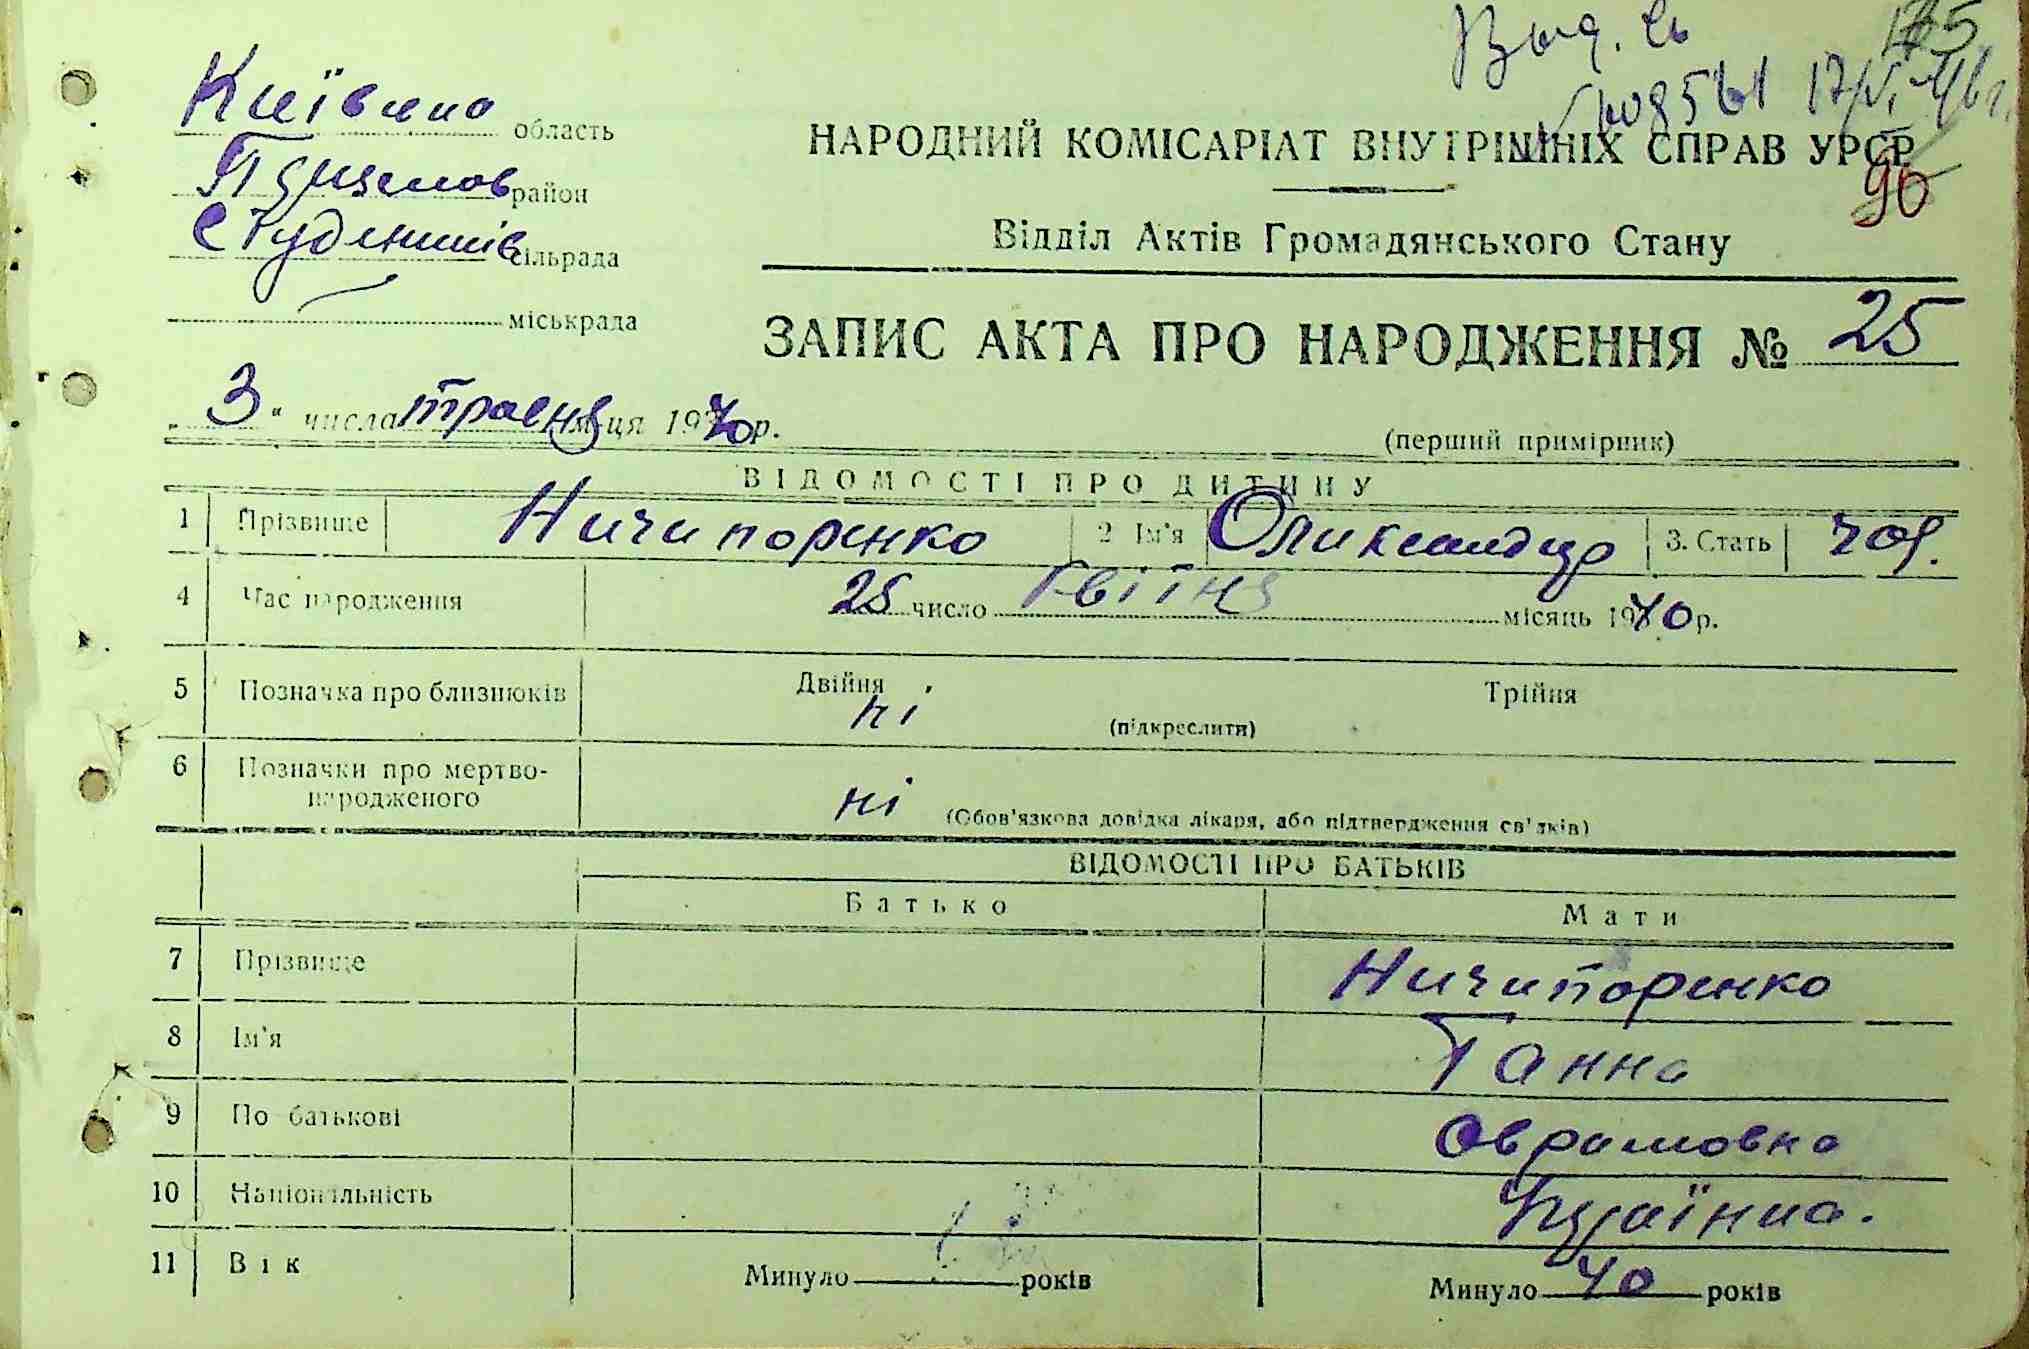 175
Выд. св
17/VI 46 г.
Київська область
НАРОДНИЙ КОМІСАРІАТ ВНУТРІШНІХ СПРАВ УРСР
90
район
Студеників сільрада
Відділ Актів Громадянського Стану
міськрада
ЗАПИС АКТА ПРО НАРОДЖЕННЯ № 25
„ 3 “ числа травня м-ця 1940 р.
(перший примірник)
ВІДОМОСТІ ПРО ДИТИНУ
1 Прізвище Ничипоренко 2 Ім'я Олександр 3. Стать чол.
4 Час народження 25 число квітня місяць 1940 р.
5 Позначка про близнюків Двійня ні Трійня
(підкреслити)
6 Позначки про мертво-
народженого ні (Обов'язкова довідка лікаря, або підтвердження св'дків)
ВІДОМОСТІ ПРО БАТЬКІВ
Батько Мати
7 Прізвище Ничипоренко
8 Ім'я Ганна
9 По батькові Оврамовна
10 Національність Українка.
11 Вік Минуло років Минуло 40 років